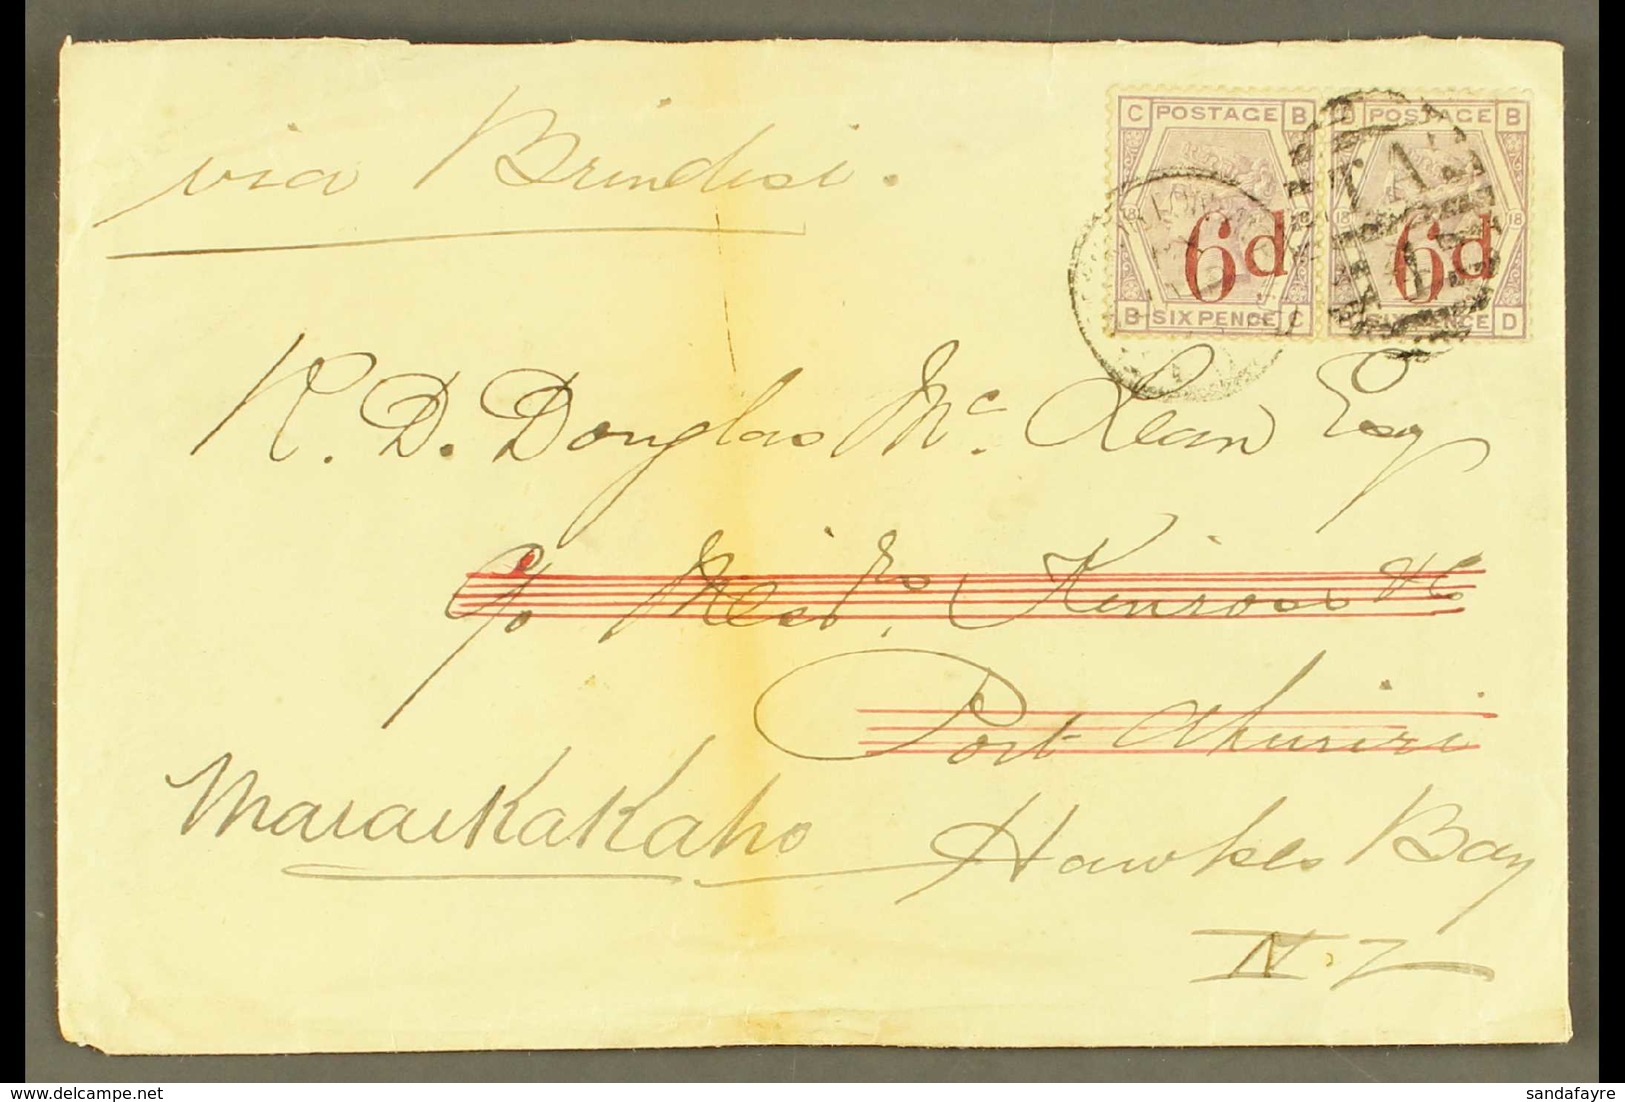 via Brindisi.
C POSTAGE B
18 18
6d
B SIX PENCE C
D POSTAGE B
18 18
6d
B SIX PENCE D
R. D. Douglas McLean Esq
c/o Messrs Kinross & Co
Port Ahuriri
Maraekakaho Hawkes Bay
N.Z
sandafayre